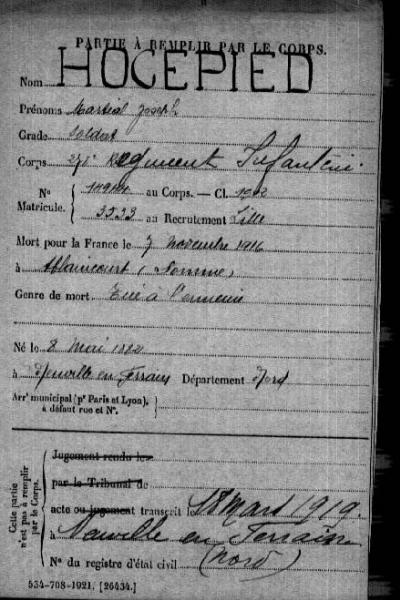 PARTIE À REMPLIR PAR LE CORPS.
Nom HOCEPIED
Prénoms Martial Joseph
Grade Soldat
Corps 271e Régiment Infanterie
No au Corps. — Cl. 1902
Matricule. 3533 au Recrutement Lille
Mort pour la France le 7 novembre 1916
à Ablaincourt (Somme)
Genre de mort Tué à l'ennemi
Né le 8 Mai 1882
à Neuville en Ferrain Département Nord
Arrt municipal (pr Paris et Lyon),
à défaut rue et No.
Cette partie
n'est pas à remplir
par le Corps.
Jugement rendu le
par le Tribunal de
acte ou jugement transcrit le 18 Mart 1919
à Neuville en Ferrain
(Nord)
No du registre d'état civil
534-708-1921. [26434.]